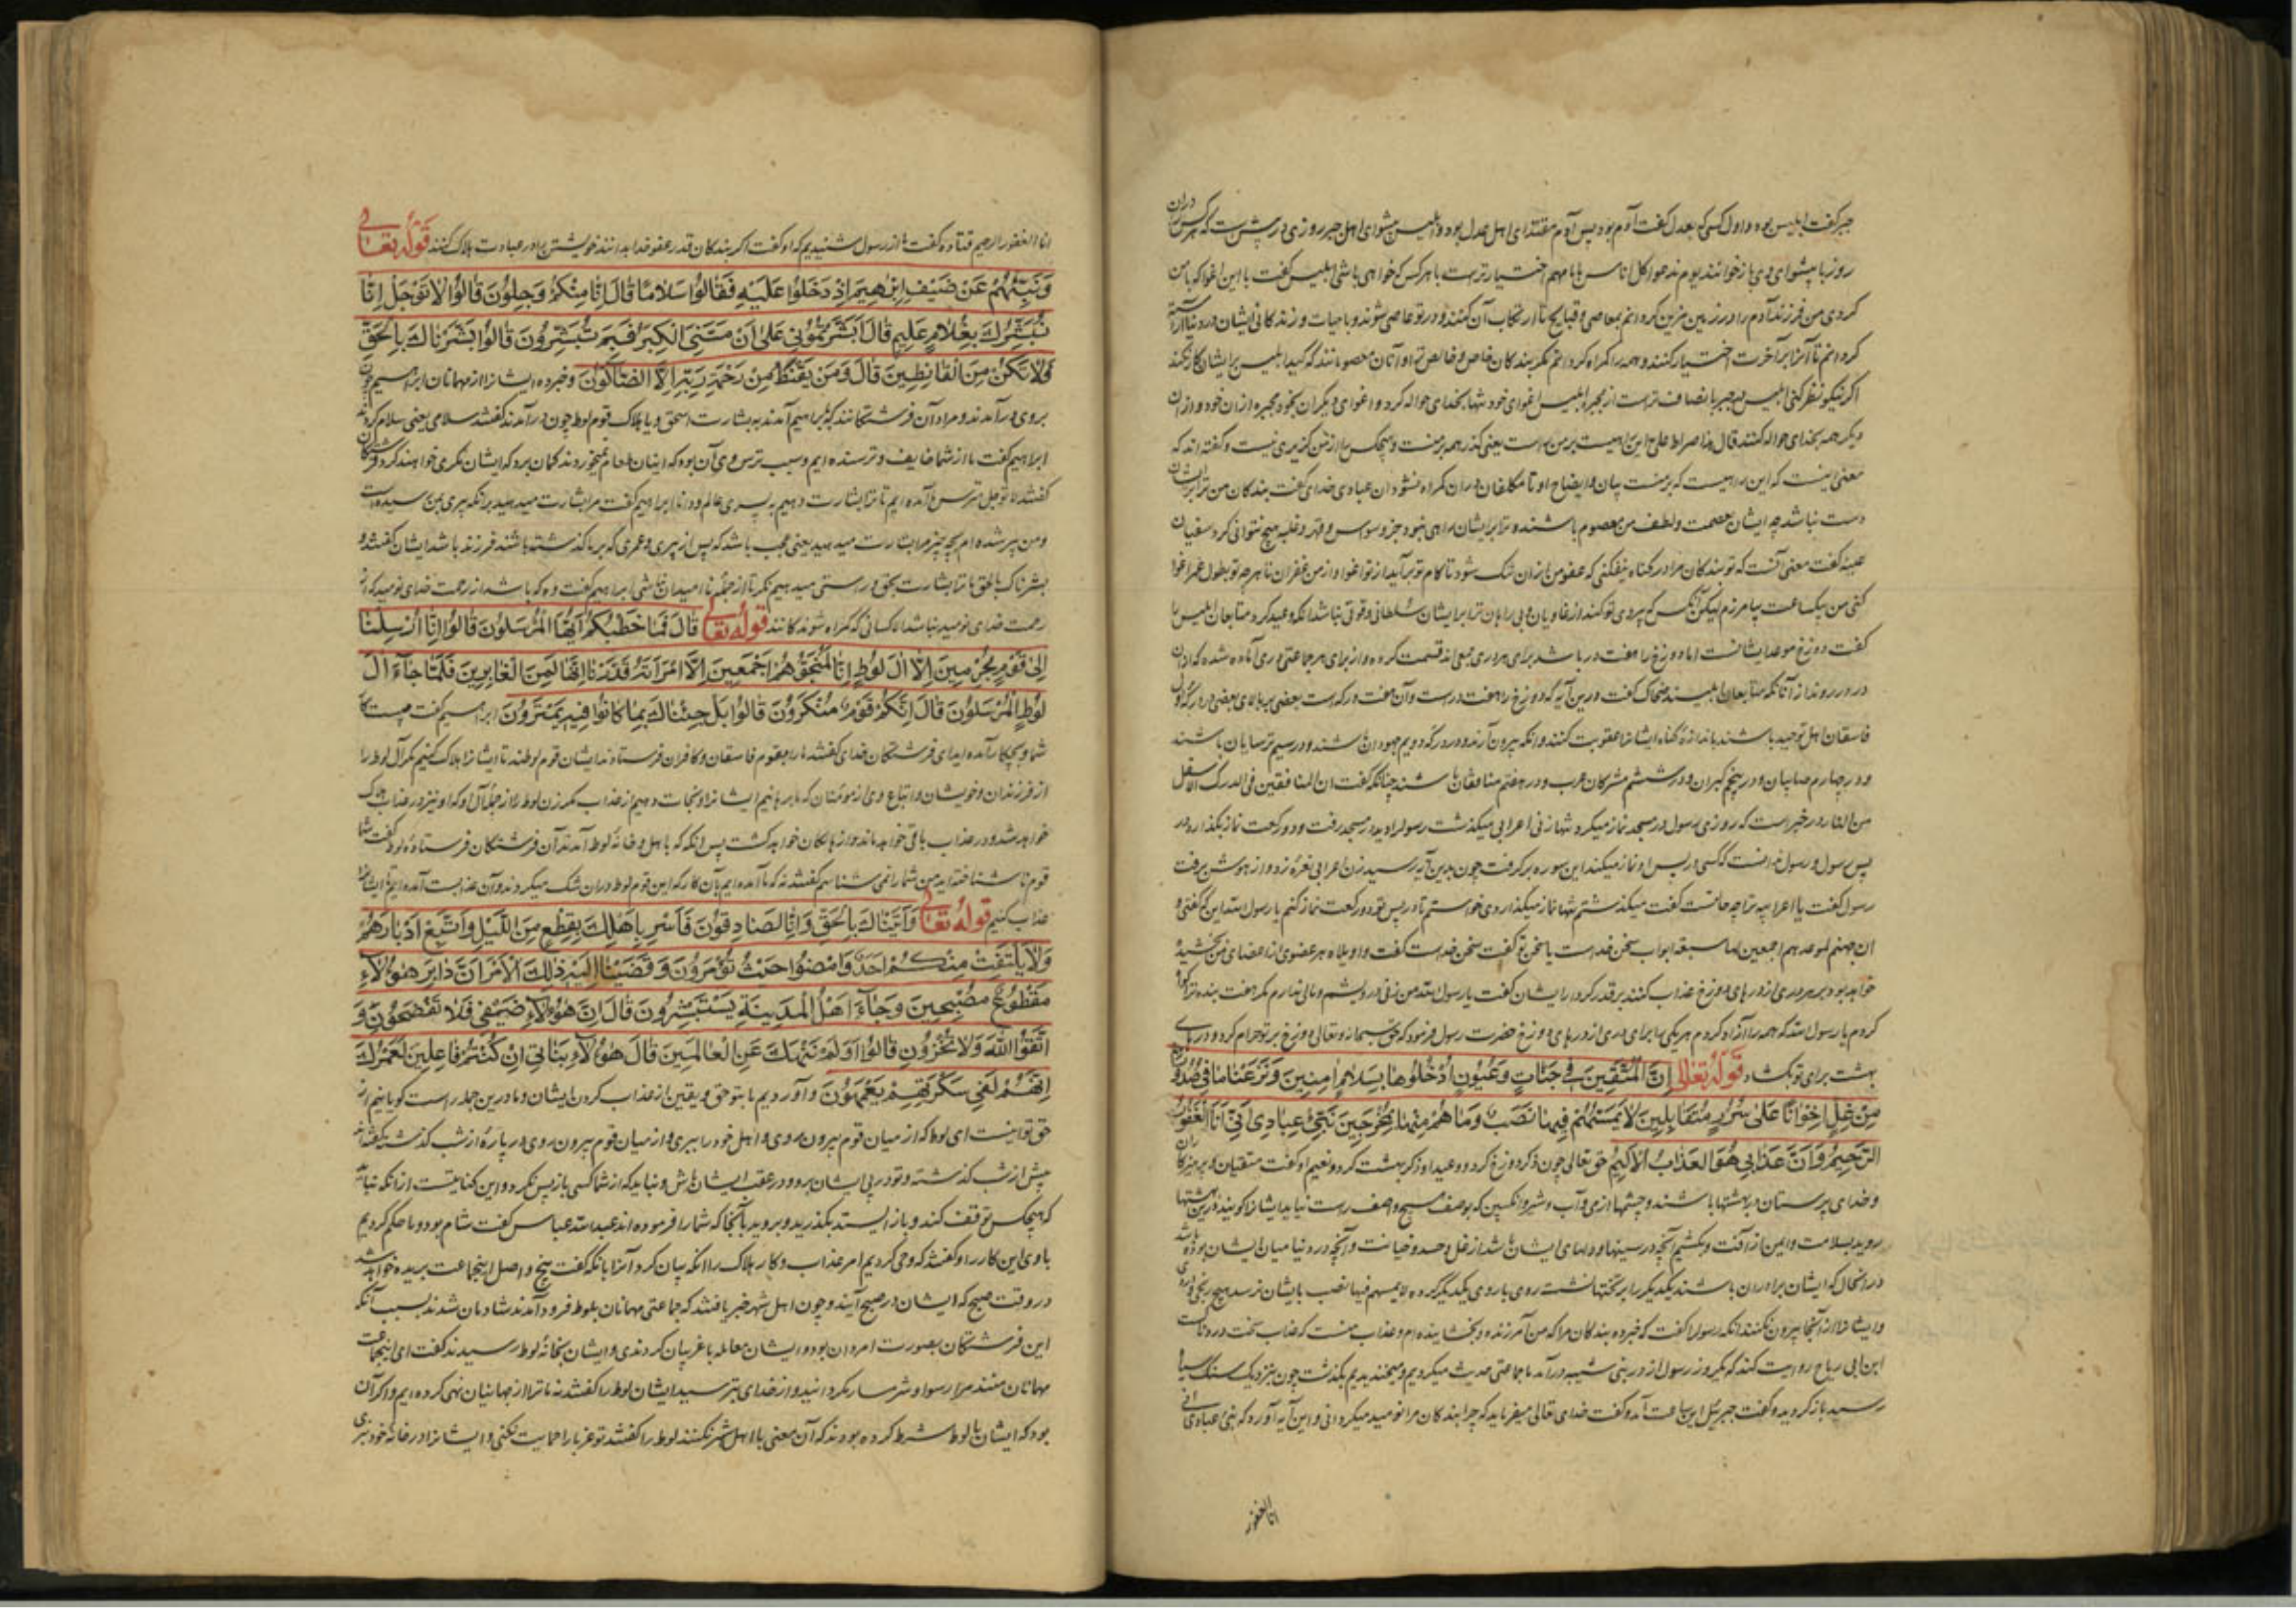 جبر گفت ابلیس بود و اول کسی که بعدل گفت آدم بود پس آدم مقتدای اهل عدل بود و ابلیس پیشوای اهل جبر روزی در پیش است که هر کس را در ان
روز با پیشوای وی باز خوانند یوم ندعوا کل اناس بامامهم اختیار تراست با هر کس که خواهی باشی ابلیس گفت با این اغوا که با من
کردی من فرزند آدم را در زمین مزین گردانم بمعاصی و قبایح تا ارتکاب آن کنند و در تو عاصی شوند و با حیات و زندکانی ایشان در دنیا آراسته
گردانم تا آنرا بر آخرت اختیار کنند و همه را گمراه گردانم مگر بندکان خاص و خالص تو و آنان معصومانند که کید ابلیس بر ایشان کار نکند
اگر نیکو نظر کنی ابلیس بی جبر با نصاف تر است از مجبر ابلیس اغوای خود تنها بخدای حواله کرد و اغوای دیگران بخود و مجبره از ان خود و از ان
دیگر همه بخدای حواله کنند قال هذا صراط علی این راهیست بر من راست یعنی گذر همه بر منست و هیچکس را از من گزیری نیست و گفته اند که
معنی اینست که این راهیست که بر منست بیان و ایضاح او تا مکلفان در ان گمراه نشوند ان عبادی خدای گفت بندکان من ترا بر ایشان
دست نباشد چه ایشان بعصمت و لطف من معصوم باشند و ترا بر ایشان راهی نبود جز وسوس و قهر و غلبه هیچ نتوانی کرد سفیان
عیینه گفت معنی آنست که تو بندکان مرا در گناه نیفکنی که عفو من از ان تنک شود تا کام تو بر آید از تو اغوا و از من غفران تا هر چه تو بطول عمر اغوا
کنی من بیکساعت بیامرزم لیکن آنکس که پیروی تو کند از غاویان و بی راهان ترا بر ایشان سلطانی و قوتی باشد آنکه وعید کرد متابعان ابلیس را
گفت دوزخ موعد ایشانست اما دوزخ را هفت در باشد برای هر دری جمعی اند قسمت کرده و از برای هر جماعتی دری آماده شده که از ان
در در روند از آنانکه متابعان ابلیسند ضحاک گفت در این آیه که دوزخ را هفت در است و آن هفت درکه است بعضی بر بالای بعضی در درکه اولی
فاسقان اهل توحید باشند باندازه گناه ایشانرا عقوبت کنند و آنکه بیرون آرند و در درکه دویم جهودان باشند و در سیم ترسایان باشند
و در چهارم صابیان و در پنجم گبران و در ششم مشرکان عرب و در هفتم منافقان باشند چنانکه گفت ان المنافقین فی الدرک الاسفل
من النار در خبر است که روزی رسول در مسجد نماز میکرد تنها زنی اعرابی میگذشت رسول را دید در مسجد رفت و دو رکعت نماز بگذارد در
پس رسول و رسول ندانست که کسی در پس او نماز میکند این سوره بر گرفت چون بدین آیه رسید زن اعرابی نعره زد و از هوش برفت
رسول گفت یا اعرابیه ترا چه حالست گفت میگذشتم تنها نماز میگذاردی خواستم تا در پس تو دو رکعت نماز کنم یا رسول الله این که گفتی و
ان جهنم لموعدهم اجمعین لها سبعة ابواب سخن خداست یا سخن تو گفت سخن خداست گفت واویلاه هر عضوی از اعضای من بخشیده
خواهد بود بر هر دری از درهای دوزخ عذاب کنند بر قدر کردار ایشان گفت یا رسول الله من زنی درویشم و مالی ندارم مگر هفت بنده ترا گواه
کردم یا رسول الله که همه را آزاد کردم هر یکی را برای دری از درهای دوزخ حضرت رسول فرمود که حق سبحانه و تعالی دوزخ بر تو حرام کرد و درهای
بهشت برای تو بگشاد قوله تعالی اِنَّ الْمُتَّقِینَ فِی جَنَّاتٍ وَعُیُونٍ اُدْخُلُوهَا بِسَلَامٍ اٰمِنِینَ وَنَزَعْنَا مَا فِی صُدُورِهِم
مِنْ غِلٍّ اِخْوَانًا عَلیٰ سُرُرٍ مُتَقَابِلِینَ لَا یَمَسُّهُمْ فِیهَا نَصَبٌ وَمَا هُمْ مِنْهَا بِمُخْرَجِینَ نَبِّئْ عِبَادِی اَنِّی اَنَا الْغَفُورُ
الرَّحِیمُ وَاَنَّ عَذَابِی هُوَ الْعَذَابُ الْاَلِیمُ حق تعالی چون ذکر دوزخ کرد و وعید او ذکر بهشت کرد و نعیم او گفت متقیان و پرهیزکاران
و خدای پرستان در بهشتها باشند و چشمها از می و آب و شیر و انگبین که بوصف هیچ واصف راست نیاید ایشانرا گویند در این بهشتها
روید بسلامت و ایمن از آفت و بکشیم آنچه در سینها و دلهای ایشان باشد از غل و حسد و خیانت و آنچه در دنیا میان ایشان بوده باشد
در انحال که ایشان برادران باشند یکدیگر را بر تختها نشسته روی با روی یکدیگر کرده لا یمسهم فیها نصب بایشان نرسد هیچ رنجی و
و ایشانرا از آنجا بیرون نکنند آنکه رسول را گفت که خبر ده بندکان مرا که من آمرزنده و بخشاینده ام و عذاب منست که عذاب سخت دردناکست
ابن ابی رباح روایت کند که یکروز رسول از در بنی شیبه در آمد ما جماعتی حدیث میکردیم و میخندیدیم بگذشت چون بنزدیک سنک سیاه
رسید باز گردید و گفت جبرئیل این ساعت آمد و گفت خدای تعالی میفرماید که چرا بندکان مرا نومید میگردانی و این آیه آورد که نبئ عبادی انی
انا الغفور
انا الغفور الرحیم قتاده گفت ما از رسول شنیدیم که او گفت اگر بندکان قدر عفو خدا بدانند خویشتن را در عبادت هلاک کنند قوله تعالی
وَنَبِّئْهُمْ عَنْ ضَیْفِ اِبْرٰهِیمَ اِذْ دَخَلُوا عَلَیْهِ فَقَالُوا سَلَامًا قَالَ اِنَّا مِنْکُمْ وَجِلُونَ قَالُوا لَا تَوْجَلْ اِنَّا
نُبَشِّرُكَ بِغُلَامٍ عَلِیمٍ قَالَ اَبَشَّرْتُمُونِی عَلیٰ اَنْ مَسَّنِیَ الْکِبَرُ فَبِمَ تُبَشِّرُونَ قَالُوا بَشَّرْنَاكَ بِالْحَقِّ
فَلَا تَکُنْ مِنَ الْقَانِطِینَ قَالَ وَمَنْ یَقْنَطُ مِنْ رَحْمَةِ رَبِّهِ اِلَّا الضَّالُّونَ و خبر ده ایشانرا از مهمانان ابراهیم چون
بروی در آمدند و مراد آن فرشتکانند که بابراهیم آمدند به بشارت اسحق و یا هلاک قوم لوط چون در آمدند گفتند سلامی یعنی سلام کردند
ابراهیم گفت ما از شما خایف و ترسنده ایم و سبب ترس وی آن بود که اینان طعام نمیخوردند گمان برد که ایشان مکری خواهند کرد فرشتکان
گفتند لا توجل مترس ما آمده ایم تا ترا بشارت دهیم به پسری عالم و دانا ابراهیم گفت مرا بشارت میدهید برآنکه پیری بمن رسیده است
و من پیر شده ام بچه چیز مرا بشارت میدهید یعنی عجب باشد که پس از پیری و عمری که بر ما گذشته باشد فرزند باشد ایشان گفتند
بشرناک بالحق ما ترا بشارت بحق و راستی میدهیم نگر تا از جمله نا امیدان نباشی ابراهیم گفت و که باشد از رحمت خدای نومید که از
رحمت خدای نومید نباشد الا کسانی که گمراه شوندکانند قوله تعالی قَالَ فَمَا خَطْبُکُمْ اَیُّهَا الْمُرْسَلُونَ قَالُوا اِنَّا اُرْسِلْنَا
اِلیٰ قَوْمٍ مُجْرِمِینَ اِلَّا اٰلَ لُوطٍ اِنَّا لَمُنَجُّوهُمْ اَجْمَعِینَ اِلَّا امْرَاَتَهُ قَدَّرْنَا اِنَّهَا لَمِنَ الْغَابِرِینَ فَلَمَّا جَآءَ اٰلَ
لُوطٍ الْمُرْسَلُونَ قَالَ اِنَّکُمْ قَوْمٌ مُنْکَرُونَ قَالُوا بَلْ جِئْنَاكَ بِمَا کَانُوا فِیهِ یَمْتَرُونَ ابراهیم گفت چیست کار
شما و بچکار آمده اید ای فرشتکان خدای گفتند ما را بقوم فاسقان و کافران فرستاده اند ایشان قوم لوطند تا ایشانرا هلاک کنیم مگر آل لوط را
از فرزندان و خویشان و اتباع وی از مومنان که ما برهانیم ایشانرا و نجات دهیم از عذاب مگر زن لوط را از جمله آل او که او نیز در عذاب هلاک
خواهد شد و در عذاب باقی خواهد ماند و از هالکان خواهد گشت پس آنکه که باهل و خانه لوط آمدند آن فرشتکان فرستاده لوط گفت شما
قوم ناشناخته اید من شما را نمی شناسم گفتند نه که ما آمده ایم بآن کار که این قوم لوط در ان شک میکردند و آن عذابست آمده ایم تا ایشانرا
عذاب کنیم قوله تعالی وَاَتَیْنَاكَ بِالْحَقِّ وَاِنَّا لَصَادِقُونَ فَاَسْرِ بِاَهْلِكَ بِقِطْعٍ مِنَ اللَّیْلِ وَاتَّبِعْ اَدْبَارَهُمْ
وَلَا یَلْتَفِتْ مِنْکُمْ اَحَدٌ وَامْضُوا حَیْثُ تُؤْمَرُونَ وَقَضَیْنَا اِلَیْهِ ذٰلِكَ الْاَمْرَ اَنَّ دَابِرَ هٰؤُلَآءِ
مَقْطُوعٌ مُصْبِحِینَ وَجَآءَ اَهْلُ الْمَدِینَةِ یَسْتَبْشِرُونَ قَالَ اِنَّ هٰؤُلَآءِ ضَیْفِی فَلَا تَفْضَحُونِ وَ
اتَّقُوا اللّٰهَ وَلَا تُخْزُونِ قَالُوا اَوَلَمْ نَنْهَكَ عَنِ الْعَالَمِینَ قَالَ هٰؤُلَآءِ بَنَاتِی اِنْ کُنْتُمْ فَاعِلِینَ لَعَمْرُكَ
اِنَّهُمْ لَفِی سَکْرَتِهِمْ یَعْمَهُونَ و آوردیم ما بتو حق و یقین از عذاب کردن ایشان و ما در این جمله راست گویانیم از
حق تو اینست ای لوط که از میان قوم بیرون روی و اهل خود را ببری و از میان قوم بیرون روی در پاره از شب گذشته
پیش از شب گذشته و تو در پی ایشان برو و در عقب ایشان باش و نباید که از شما کسی باز پس نگرد و این کنایتست از آنکه نباید
که هیچکس توقف کند و باز ایستد بگذرید و بروید بآنجا که شما را فرموده اند عبدالله عباس گفت شام بود و ما حکم کردیم
با وی این کار را و گفتند که وحی کردیم امر عذاب و کار هلاک را آنکه بیان کرد آنرا بآنکه گفت بیخ و اصل اینجماعت بریده خواهد شد
در وقت صبح که ایشان در صبح آیند و چون اهل شهر خبر یافتند که جماعتی مهمانان بلوط فرود آمدند شادمان شدند بسبب آنکه
این فرشتکان بصورت امردان بودند و ایشان معامله با غریبان کردندی و ایشان بخانه لوط رسیدند گفت ای اینجماعت
مهمانان منند مرا رسوا و شرمسار مگردانید و از خدای بترسید ایشان لوط را گفتند نه ما ترا از جهانیان نهی کرده ایم و اگر آن
بود که ایشان با لوط شرط کرده بودند که آن معنی با اهل شهر نکنند لوط را گفتند تو غربا را حمایت نکنی و ایشانرا در خانه خود نبری